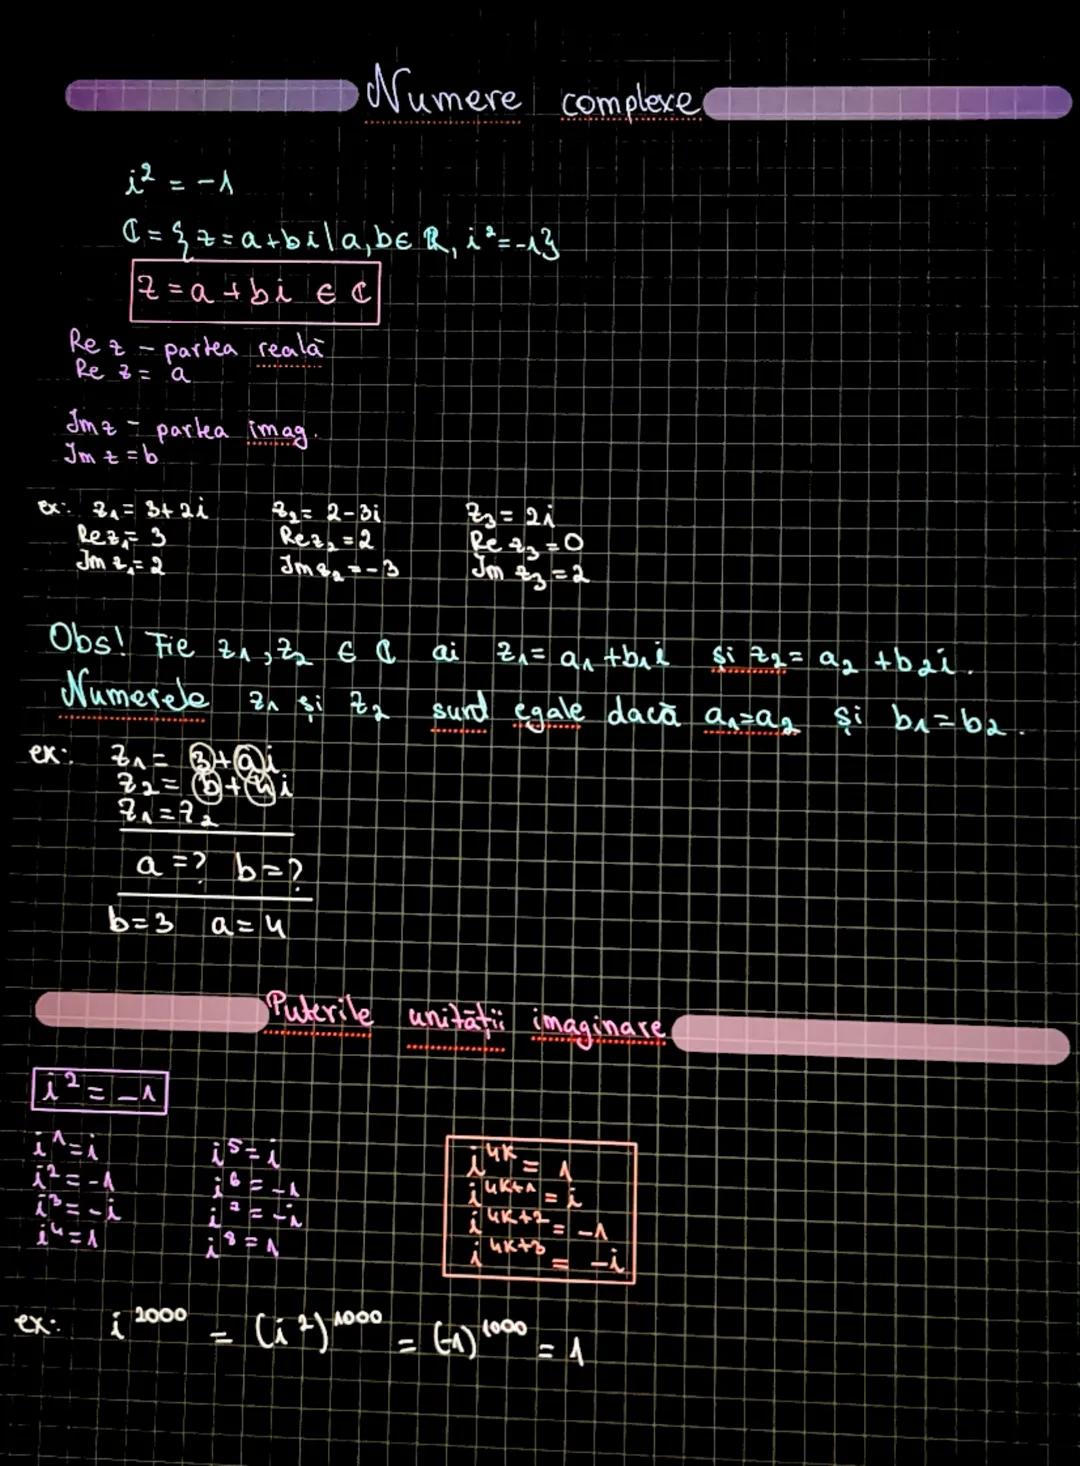 Numere complexe
i² = -1
ℂ = { z = a+bi | a,b ∈ ℝ, i² = -1}
z = a + bi ∈ ℂ
Re z - partea reală
Re z = a
Im z - partea imag.
Im z = b
ex: z₁ = 3+2i z₂ = 2-3i z₃ = 2i
Re z₁ = 3 Re z₂ = 2 Re z₃ = 0
Im z₁ = 2 Im z₂ = -3 Im z₃ = 2
Obs! Fie z₁, z₂ ∈ ℂ ai z₁ = a₁ + b₁i și z₂ = a₂ + b₂i.
Numerele z₁ și z₂ sund egale dacă a₁=a₂ și b₁=b₂.
ex: z₁ = 3+ai
z₂ = b+4i
z₁ = z₂
a = ? b = ?
b=3 a=4
Puterile unității imaginare
i² = -1
i¹ = i i⁵ = i i⁴ᵏ = 1
i² = -1 i⁶ = -1 i⁴ᵏ⁺¹ = i
i³ = -i i⁷ = -i i⁴ᵏ⁺² = -1
i⁴ = 1 i⁸ = 1 i⁴ᵏ⁺³ = -i
ex: i²⁰⁰⁰ = (i²)¹⁰⁰⁰ = (-1)¹⁰⁰⁰ = 1